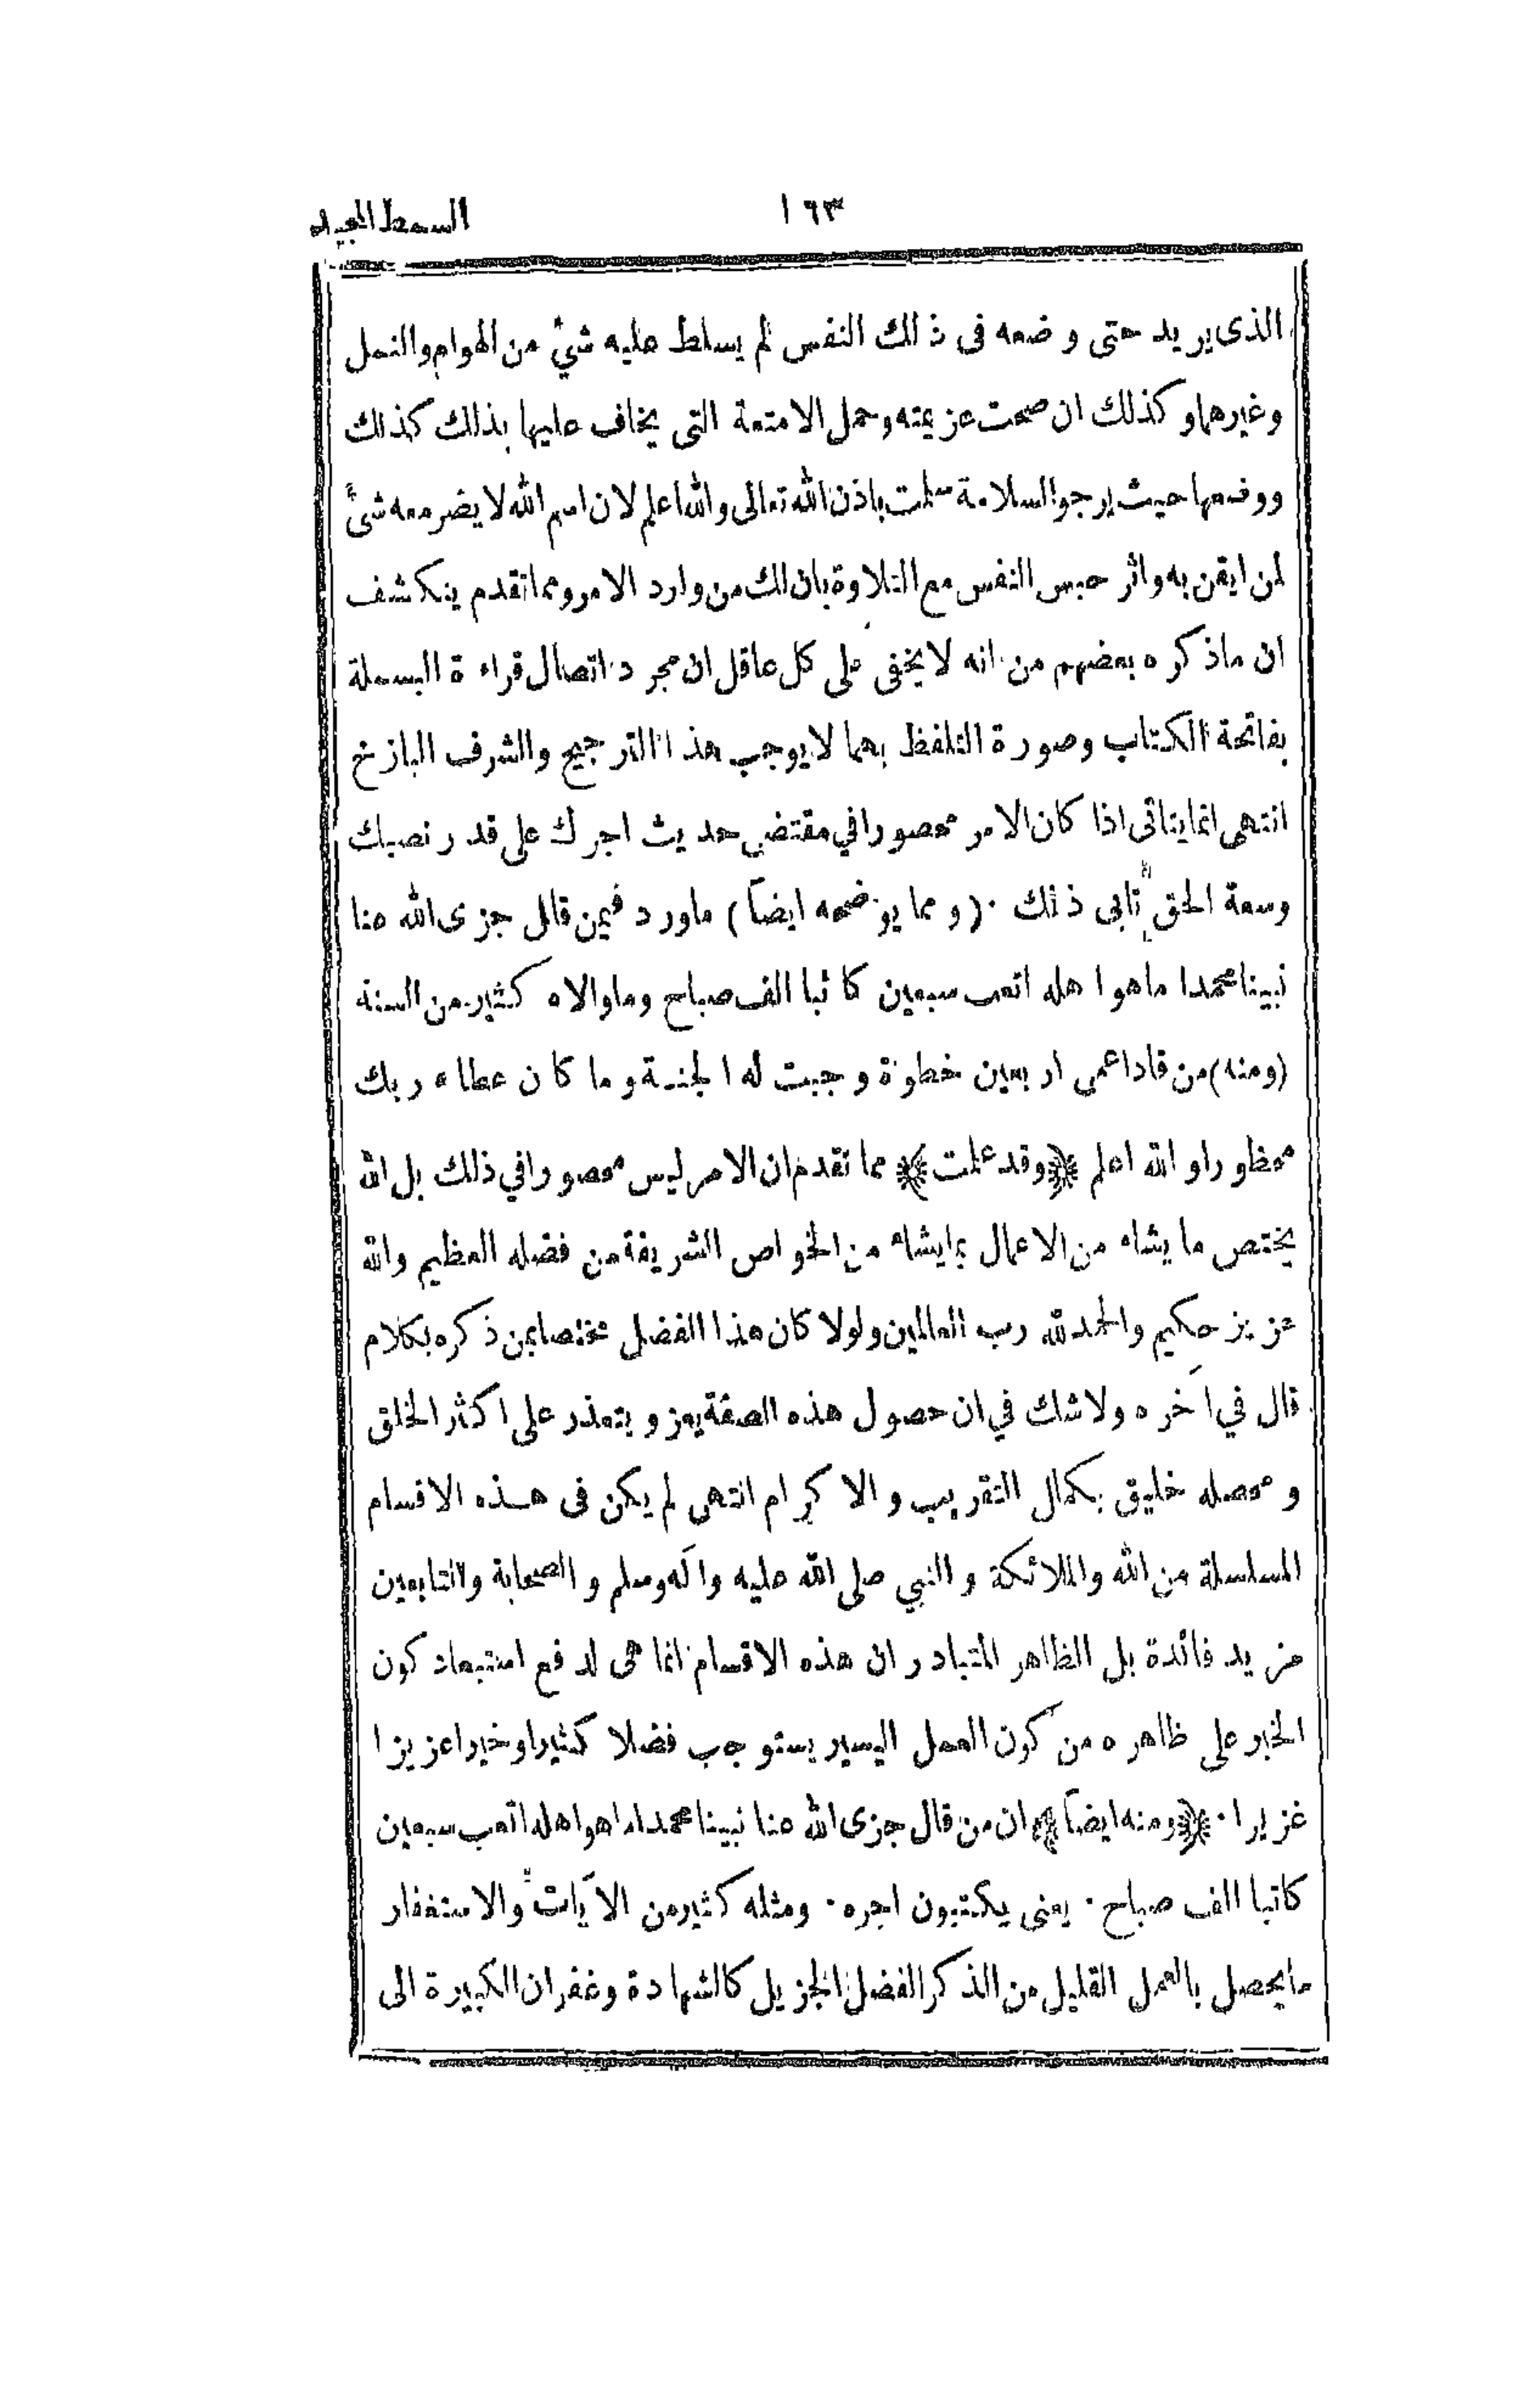 السمط المجيد
١٦٣
الذى يريد حتى وضعه فى ذلك النفس لم يسلط عليه شيٌ من الهوام والنمل
وغيرهما وكذلك ان صحت عزيمته وحمل الامتعة التى يخاف عليها بذلك كذلك
ووضعها حيث يرجو السلامة سلمت باذن الله تعالى والله اعلم لان اسم الله لا يضر معه شئً
لمن ايقن به واثر حبس النفس مع التلاوة بان لك من وارد الامر ومما تقدم ينكشف
ان ماذكره بعضهم من انه لا يخفى على كل عاقل ان مجرد اتصال قراءة البسملة
بفاتحة الكتاب وصورة التلفظ بهما لا يوجب هذا الترجيح والشرف الباذخ
انتهى انما يتاتى اذا كان الامر محصورا في مقتضى حديث اجرك على قدر نصبك
وسعة الحق تابى ذلك ٠ (ومما يوضحه ايضاً) ماورد فيمن قال جزى الله عنا
نبينا محمدا ما هو اهله اتعب سبعين كاتبا الف صباح وما والاه كثير من السنة
(ومنه) من قاد اعمى اربعين خطوة وجبت له الجنة وما كان عطاء ربك
محظورا والله اعلم ﴿وقد علمت﴾ مما تقدم ان الامر ليس محصورا في ذلك بل الله
يختص ما يشاء من الاعمال بمايشاء من الخواص الشريفة من فضله العظيم والله
عزيز حكيم والحمد لله رب العالمين ولولا كان هذا الفضل مختصا بمن ذكره بكلام
قال في اٰخره ولا شك في ان حصول هذه الصفة يعز ويتعذر على اكثر الخلق
ومحصله خليق بكمال التقريب والاكرام انتهى لم يكن فى هذه الاقسام
المسلسلة من الله والملائكة والنبي صلى الله عليه واٰله وسلم والصحابة والتابعين
مزيد فائدة بل الظاهر المتبادر ان هذه الاقسام انما هى لدفع استبعاد كون
الخبر على ظاهره من كون العمل اليسير يستوجب فضلا كثيرا وخيرا عزيزا
غزيرا ٠ ﴿ومنه ايضاً﴾ ان من قال جزى الله عنا نبينا محمدا ما هو اهله اتعب سبعين
كاتبا الف صباح ٠ يعنى يكتبون اجره ٠ ومثله كثير من الآيات والاستغفار
مايحصل بالعمل القليل من الذكر الفضل الجزيل كالشهادة وغفران الكبيرة الى